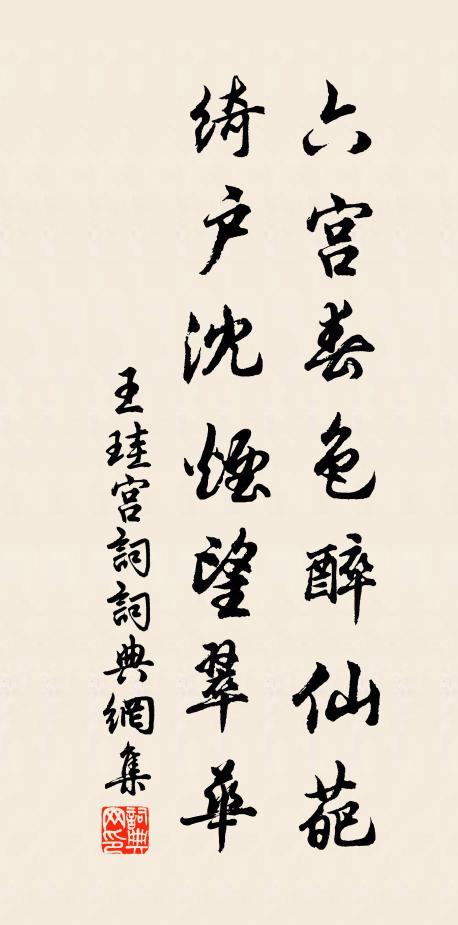 六宫春色醉仙葩
绮户沈煙望翠華
王珪宫詞詞典網集
詞典网印